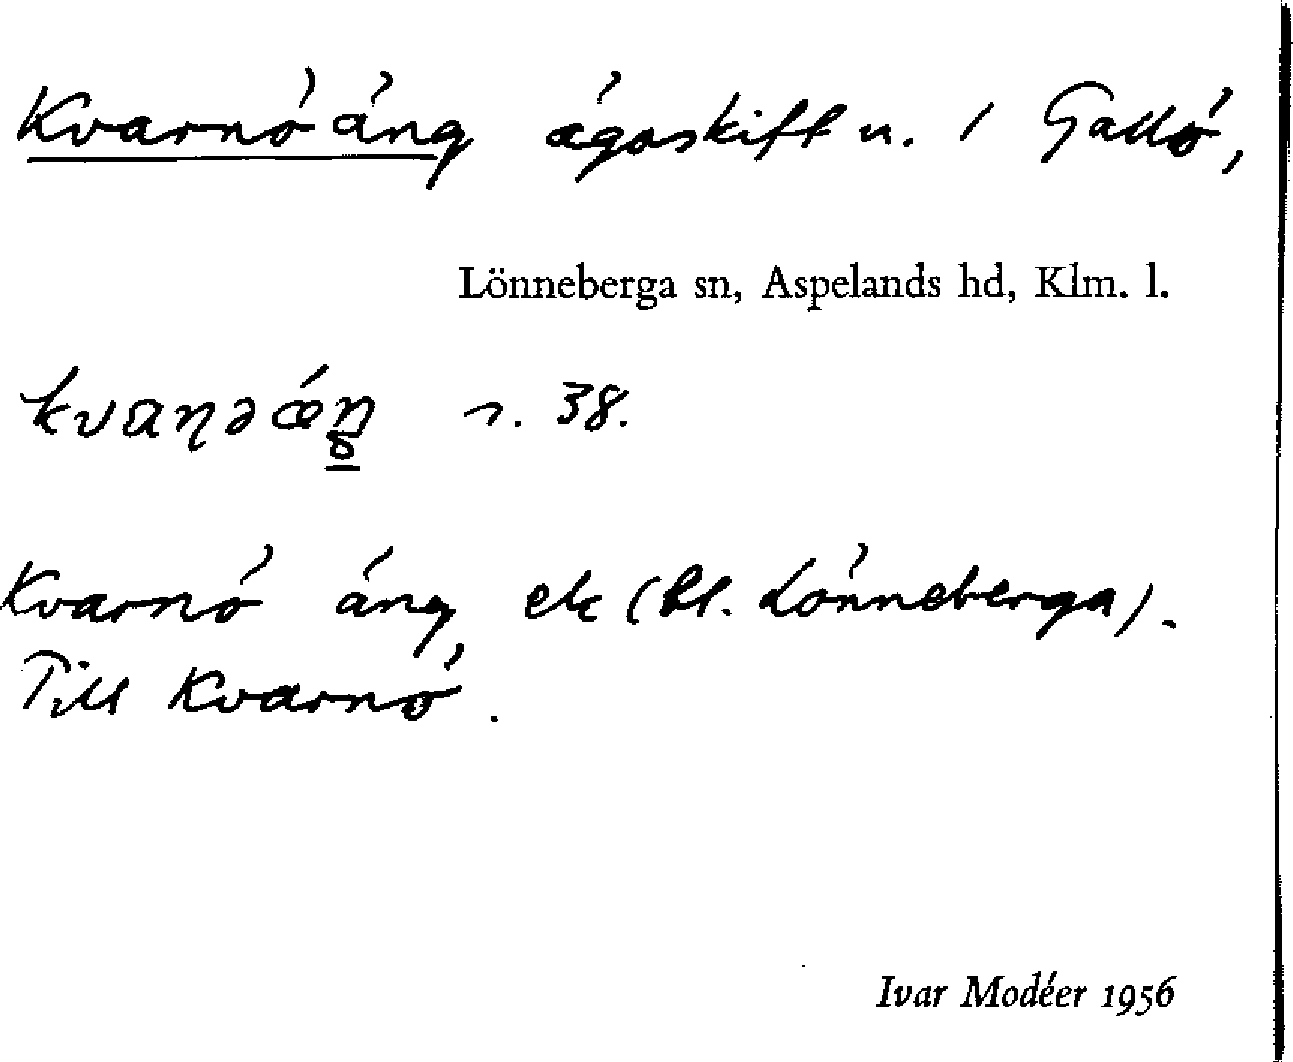 Kvarnöäng ägoskift u. / Gallö,
Lönneberga sn, Aspelands hd, Klm. l.
kvaɳəǽŋ s. 38.
Kvarnö äng, ek (bl. Lönneberga).
Till Kvarnö.
Ivar Modéer 1956